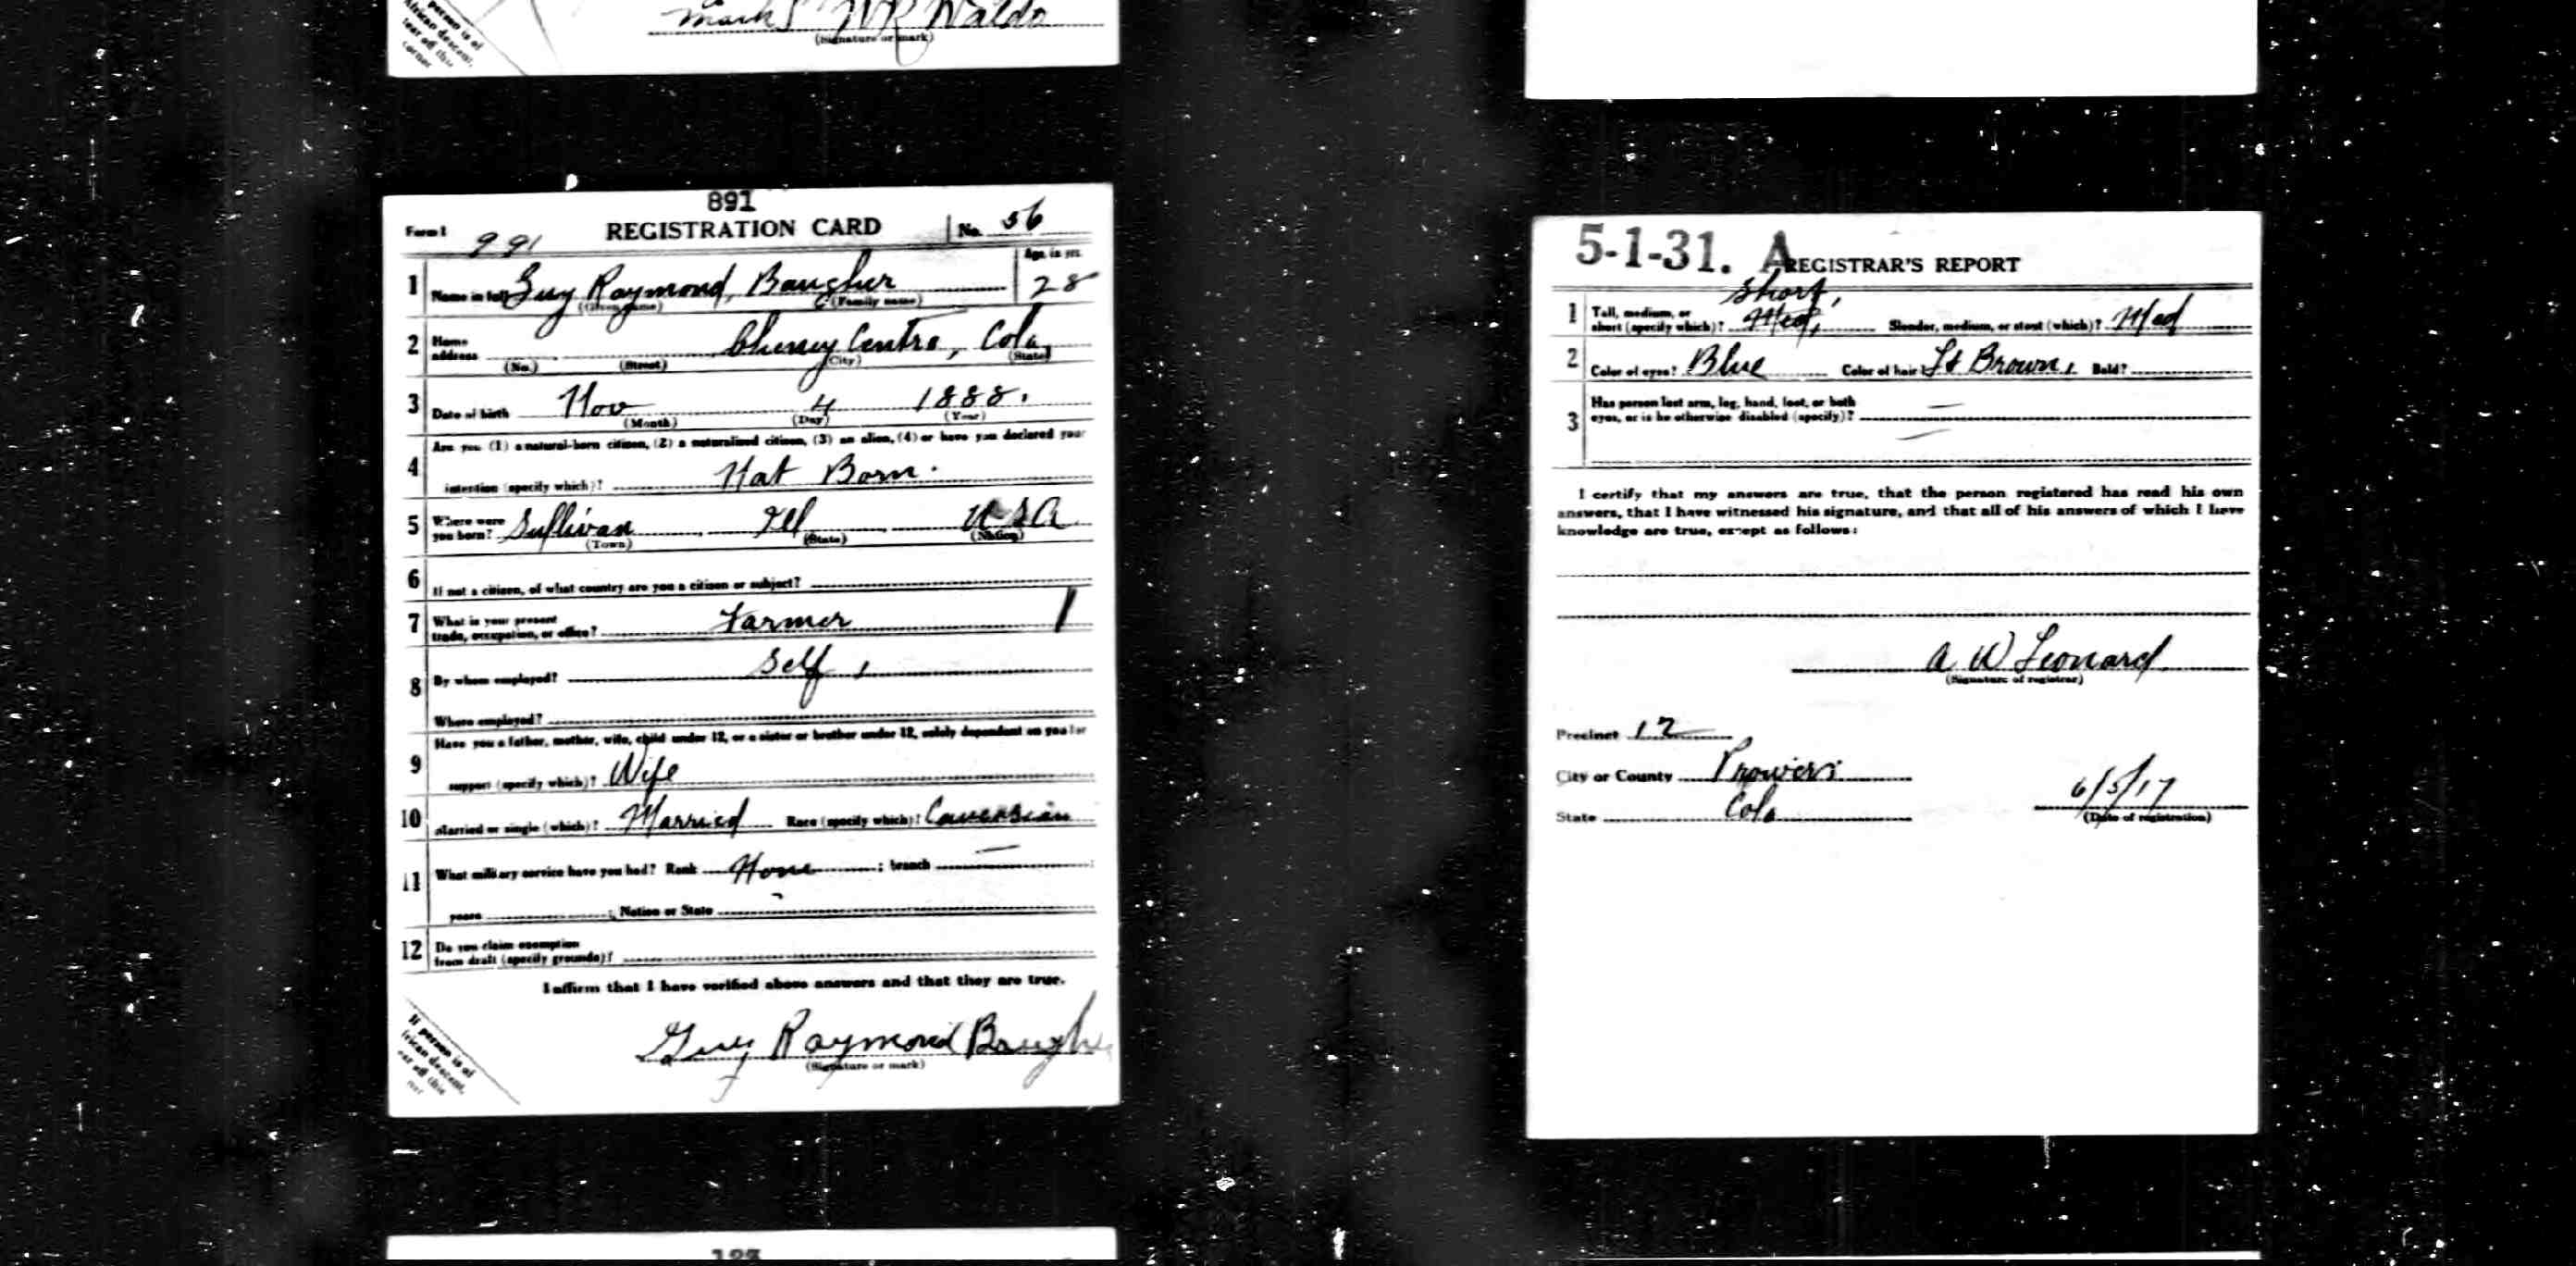 person is of
African descent,
tear off this
corner
mark WR Waldo
(Signature or mark)
891
Form 1 991 REGISTRATION CARD No. 56
Age, in yrs.
1 Name in full Guy Raymond, Baugher 28
(Given name) (Family name)
2 Home address Cheney Centre, Colo,
(No.) (Street) (City) (State)
3 Date of birth Nov 4 1888.
(Month) (Day) (Year)
Are you (1) a natural-born citizen, (2) a naturalized citizen, (3) an alien, (4) or have you declared your
4 intention (specify which)? Nat Born.
5 Where were you born? Sullivan, Ill, USA
(Town) (State) (Nation)
6 If not a citizen, of what country are you a citizen or subject?
7 What is your present trade, occupation, or office? Farmer 1
8 By whom employed? Self,
Where employed?
Have you a father, mother, wife, child under 12, or a sister or brother under 12, solely dependent on you for
9 support (specify which)? Wife
10 Married or single (which)? Married Race (specify which)? Caucasian
11 What military service have you had? Rank None ; branch —;
years ; Nation or State
12 Do you claim exemption from draft (specify grounds)?
I affirm that I have verified above answers and that they are true.
If person is of
African descent,
tear off this
Guy Raymond Baugher
(Signature or mark)
5-1-31. A REGISTRAR'S REPORT
Short,
1 Tall, medium, or short (specify which)? Med, Slender, medium, or stout (which)? Med
2 Color of eyes? Blue Color of hair? Lt Brown, Bald?
3 Has person lost arm, leg, hand, foot, or both eyes, or is he otherwise disabled (specify)? —
—
I certify that my answers are true, that the person registered has read his own
answers, that I have witnessed his signature, and that all of his answers of which I have
knowledge are true, except as follows:
A W Leonard
(Signature of registrar)
Precinct 12
City or County Prowers
State Colo 6/5/17
(Date of registration)